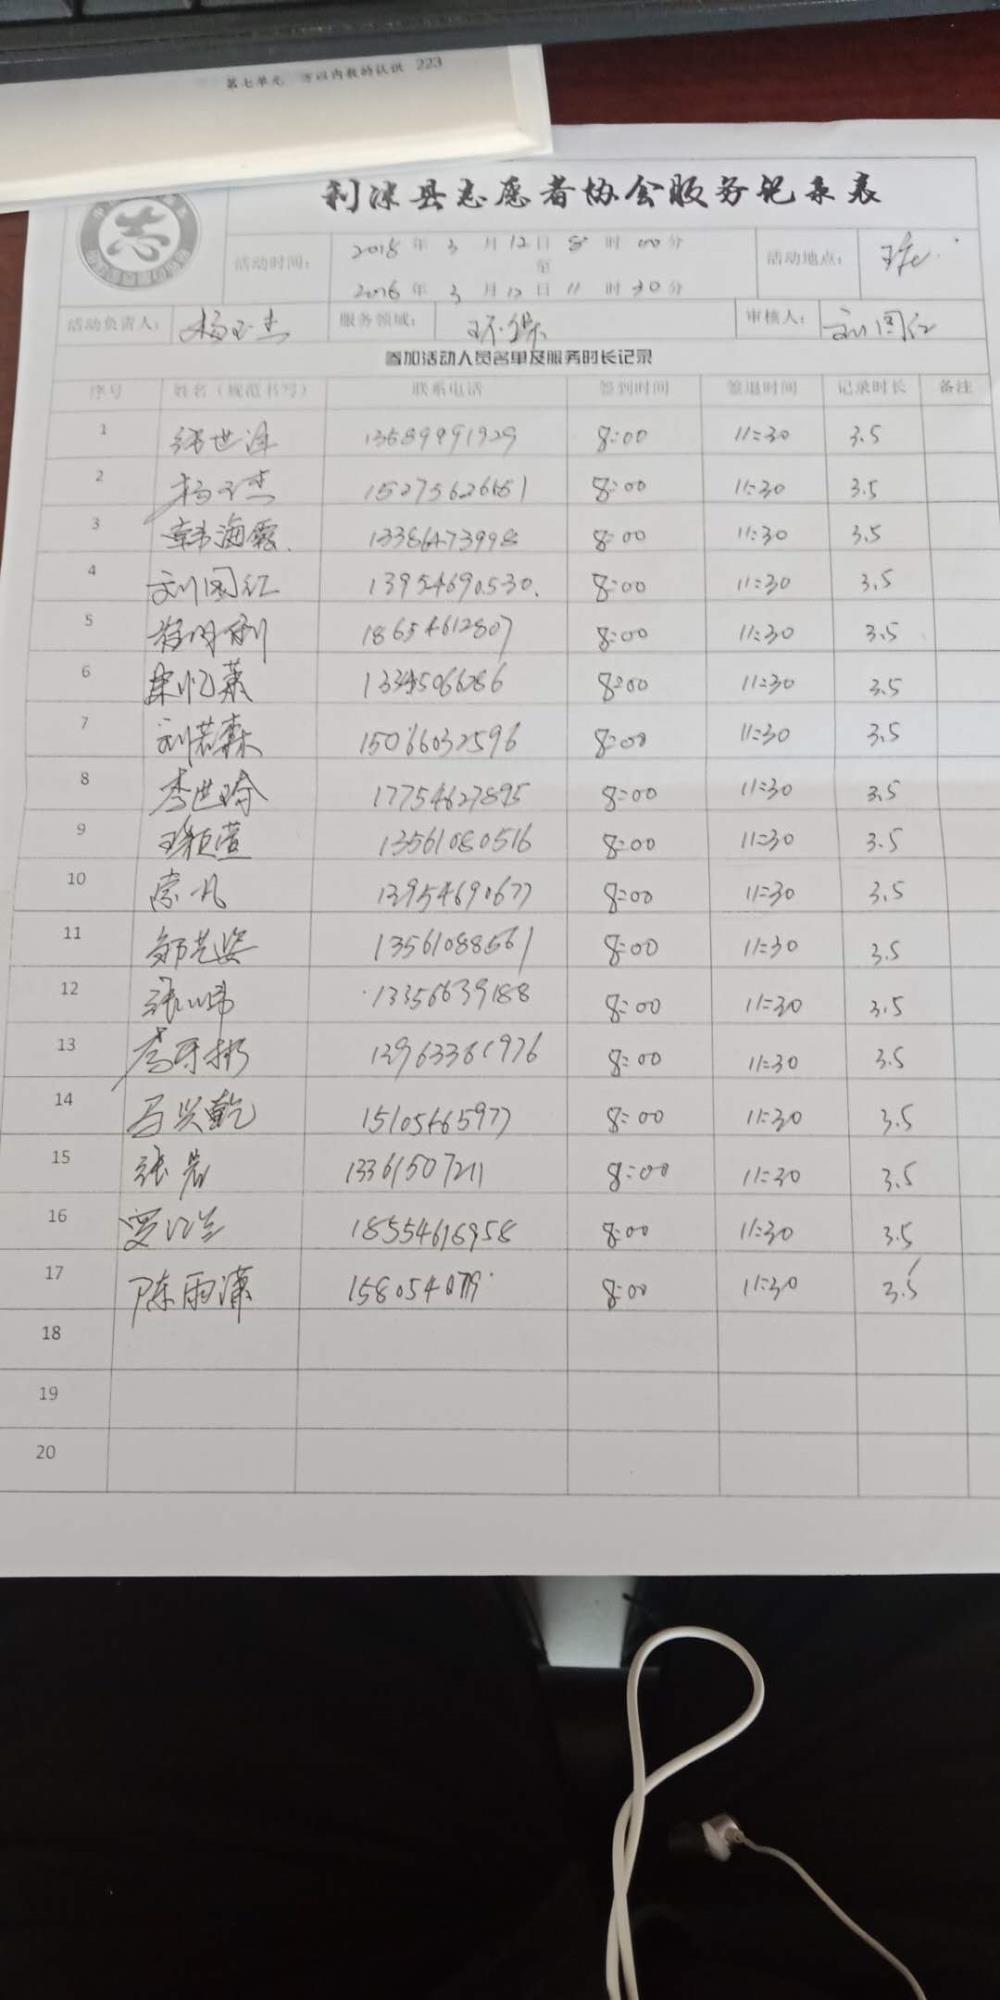 第七单元 万以内数的认识 223
利津县志愿者协会服务记录表
活动时间： 2018 年 3 月 12 日 8 时 00 分
至
2018 年 3 月 12 日 11 时 30 分
活动地点：
活动负责人： 杨玉杰 服务领域： 环保 审核人： 刘国红
参加活动人员名单及服务时长记录
序号 姓名（规范书写） 联系电话 签到时间 签退时间 记录时长 备注
1 张世泽 13689991929 8:00 11:30 3.5
2 杨玉杰 15275626651 8:00 11:30 3.5
3 韩海霞 13386473998 8:00 11:30 3.5
4 刘国红 13954690530 8:00 11:30 3.5
5 18654612807 8:00 11:30 3.5
6 13345066286 8:00 11:30 3.5
7 刘若森 15066032596 8:00 11:30 3.5
8 李世琦 17754627895 8:00 11:30 3.5
9 13561080516 8:00 11:30 3.5
10 常凡 13954690677 8:00 11:30 3.5
11 郭艺姿 13561088561 8:00 11:30 3.5
12 13356639188 8:00 11:30 3.5
13 8:00 11:30 3.5
14 马兴乾 15105465977 8:00 11:30 3.5
15 张岩 13361507211 8:00 11:30 3.5
16 18554618958 8:00 11:30 3.5
17 陈雨潇 8:00 11:30 3.5
18
19
20